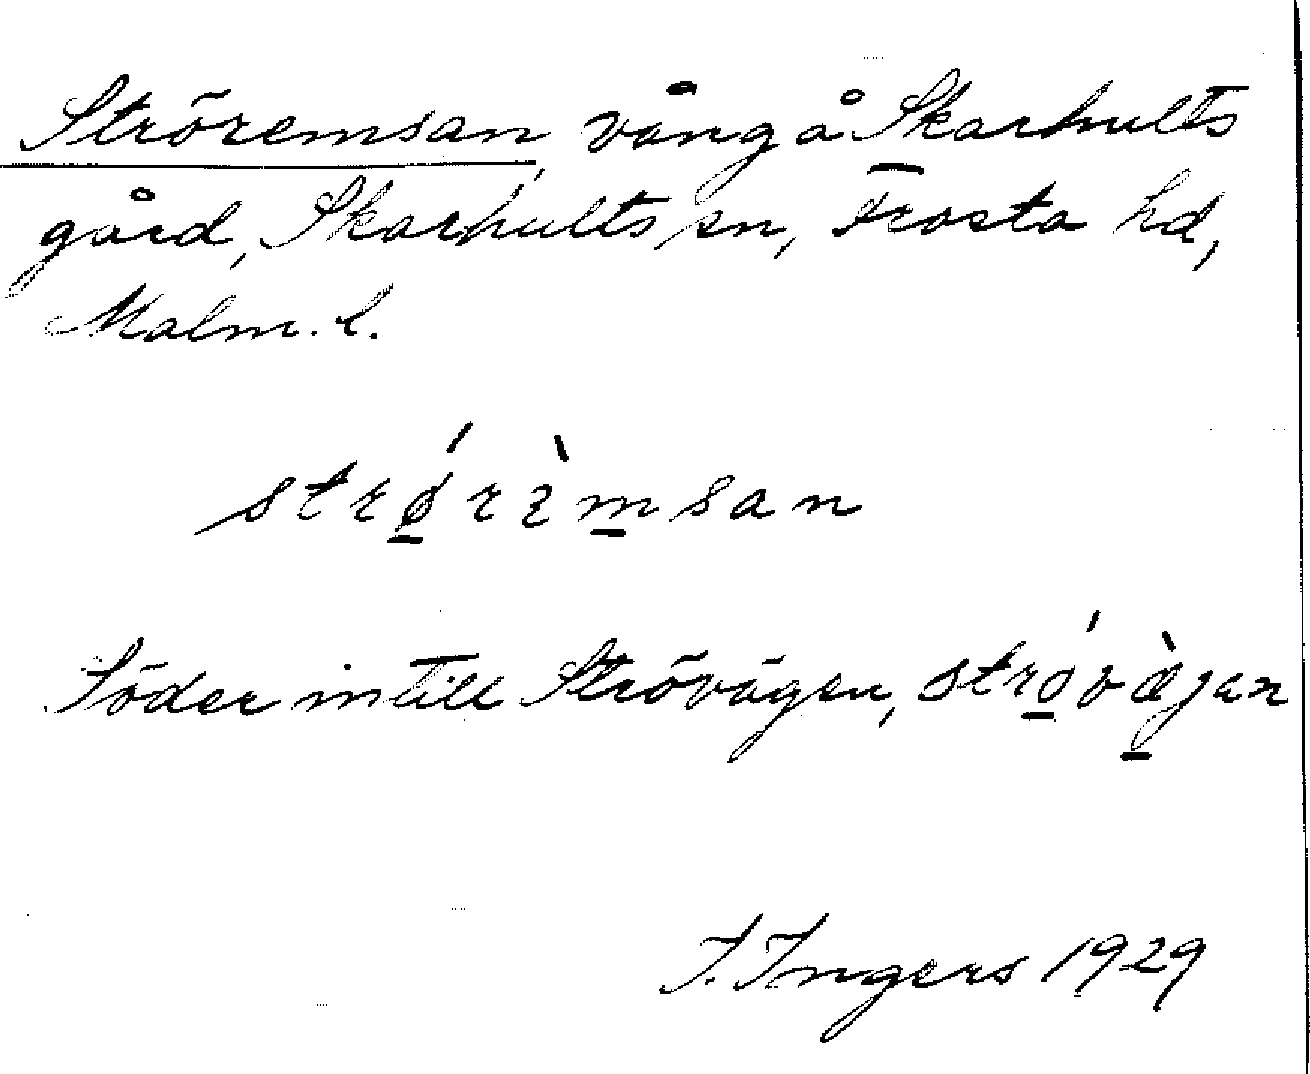 Ströremsan, vång å Skarhults
gård, Skarhults sn, Frosta hd,
Malm. l.
strǿ̱rὲm̱san
Söder intill Strövägen, strǿ̱væ̱̀jan
I. Ingers 1929